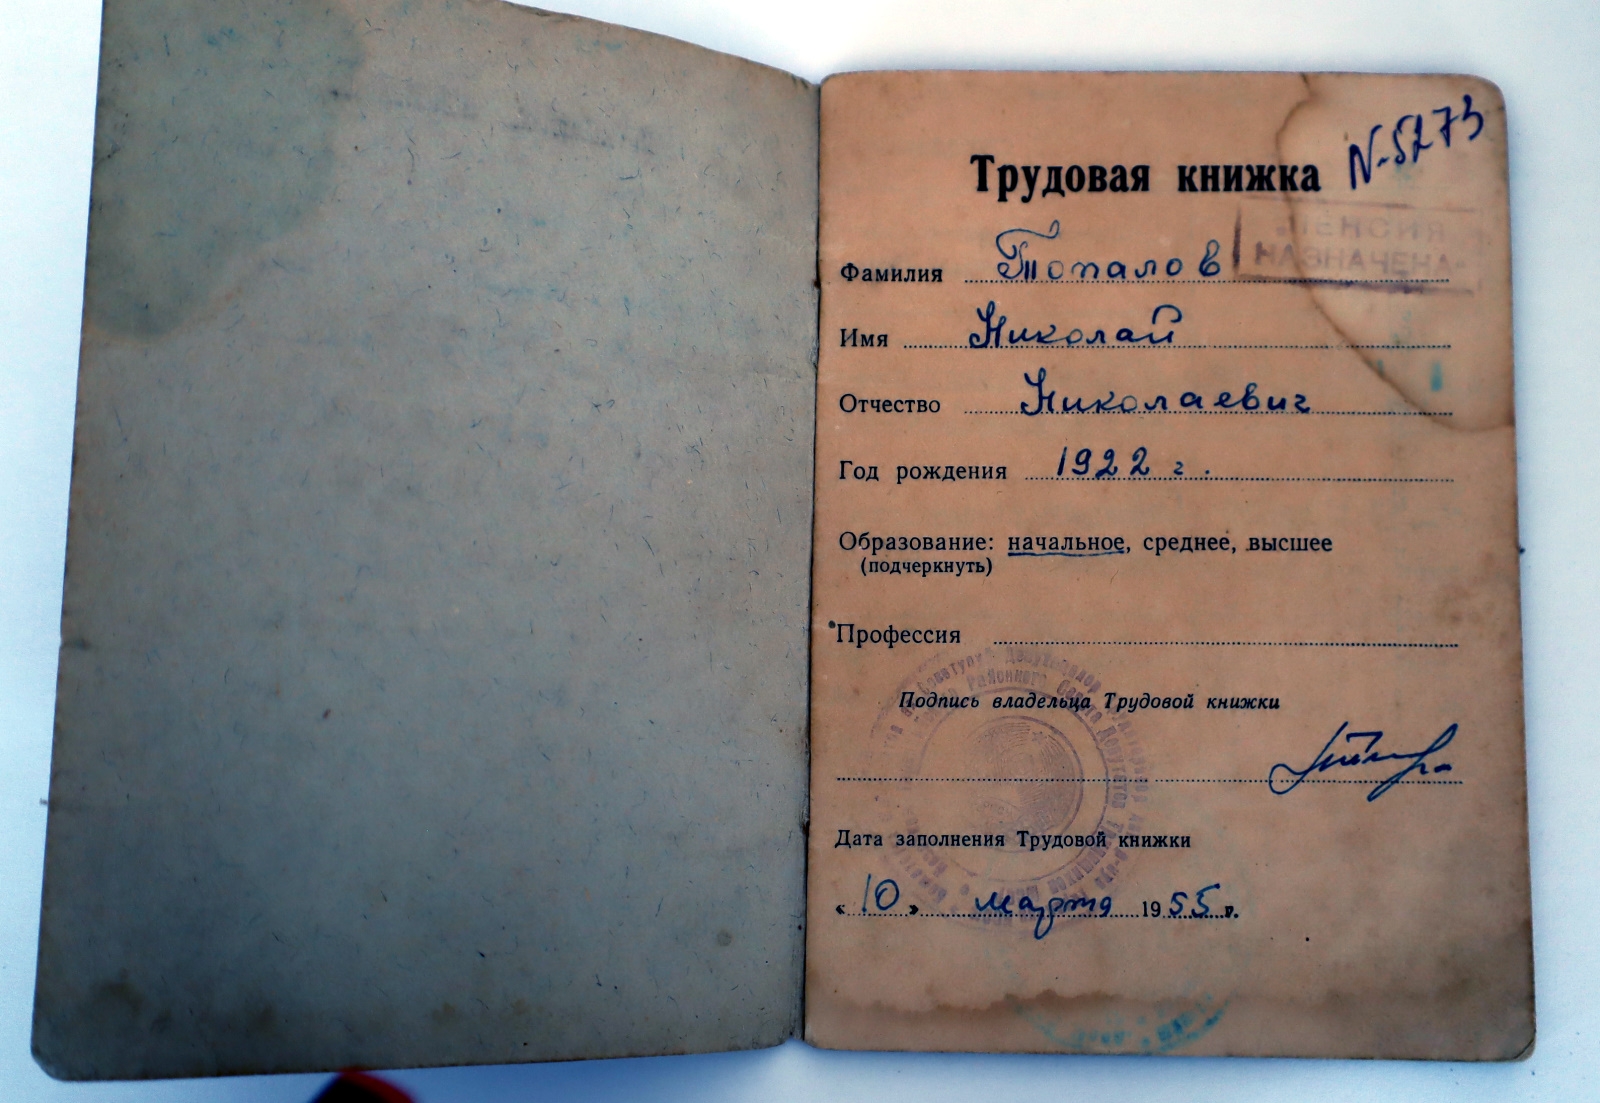 N-5273
Трудовая книжка
ПЕНСИЯ
НАЗНАЧЕНА
Фамилия Топалов
Имя Николай
Отчество Николаевич
Год рождения 1922 г.
Образование: начальное, среднее, высшее
(подчеркнуть)
Профессия
Подпись владельца Трудовой книжки
Дата заполнения Трудовой книжки
«10» марта 1955 г.